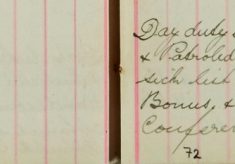 Day duty
& Patroled
sick list
Bonus, &
Conferen
72